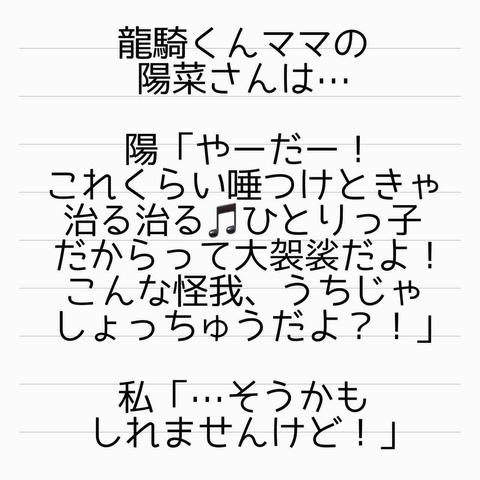 龍騎くんママの
陽菜さんは…
陽「やーだー！
これくらい唾つけときゃ
治る治る🎵ひとりっ子
だからって大袈裟だよ！
こんな怪我、うちじゃ
しょっちゅうだよ？！」
私「…そうかも
しれませんけど！」